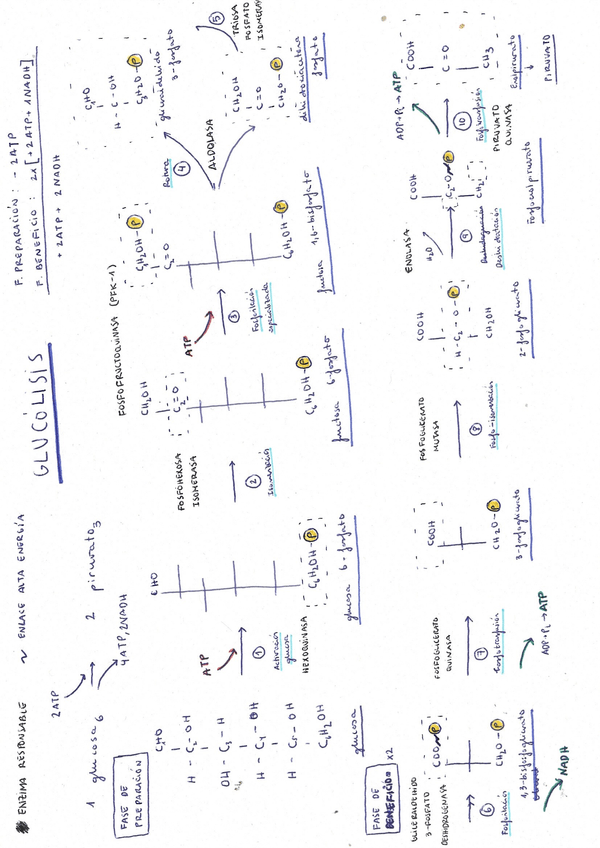 ENZIMA RESPONSABLE
~ ENLACE ALTA ENERGÍA
GLUCÓLISIS
F. PREPARACIÓN : - 2ATP
F. BENEFICIO : 2x [+2ATP + 1NADH]
+ 2ATP + 2NADH
2ATP
1 glucosa 6
2 piruvato3
4ATP, 2NADH
FASE DE
PREPARACIÓN
C1HO
H - C2 - OH
OH - C3 - H
H - C4 - OH
H - C5 - OH
C6H2OH
glucosa
ATP
1
Activación
glucosa
HEXOQUINASA
CHO
C6H2OH - P
glucosa 6-fosfato
FOSFOHEXOSA
ISOMERASA
2
Isomerización
CH2OH
C2 = O
C6H2OH - P
fructosa 6-fosfato
FOSFOFRUCTOQUINASA (PFK-1)
ATP
3
Fosforilación
C1H2OH - P
C2 = O
C6H2OH - P
fructosa 1,6-bisfosfato
Rotura
4
ALDOLASA
C1HO
H - C - OH
C3H2O - P
gliceraldehído
3-fosfato
5
TRIOSA
FOSFATO
ISOMERASA
CH2OH
C = O
CH2O - P
dihidroxiacetona
fosfato
FASE DE
BENEFICIO x2
GLICERALDEHIDO
3-FOSFATO
DESHIDROGENASA
6
Fosforilación
NADH
COO~P
CH2O - P
1,3-bisfosfoglicerato
FOSFOGLICERATO
QUINASA
7
Fosfotransferión
ADP+Pi → ATP
COOH
CH2O - P
3-fosfoglicerato
FOSFOGLICERATO
MUTASA
8
Fosfo-isomerización
COOH
H - C2 - O - P
CH2OH
2-fosfoglicerato
ENOLASA
H2O
9
Deshidratación
COOH
C2 - O~P
CH2
Fosfoenolpiruvato
ADP+Pi → ATP
10
Fosfotransferión
PIRUVATO
QUINASA
COOH
C = O
CH3
Enolpiruvato
↓
PIRUVATO